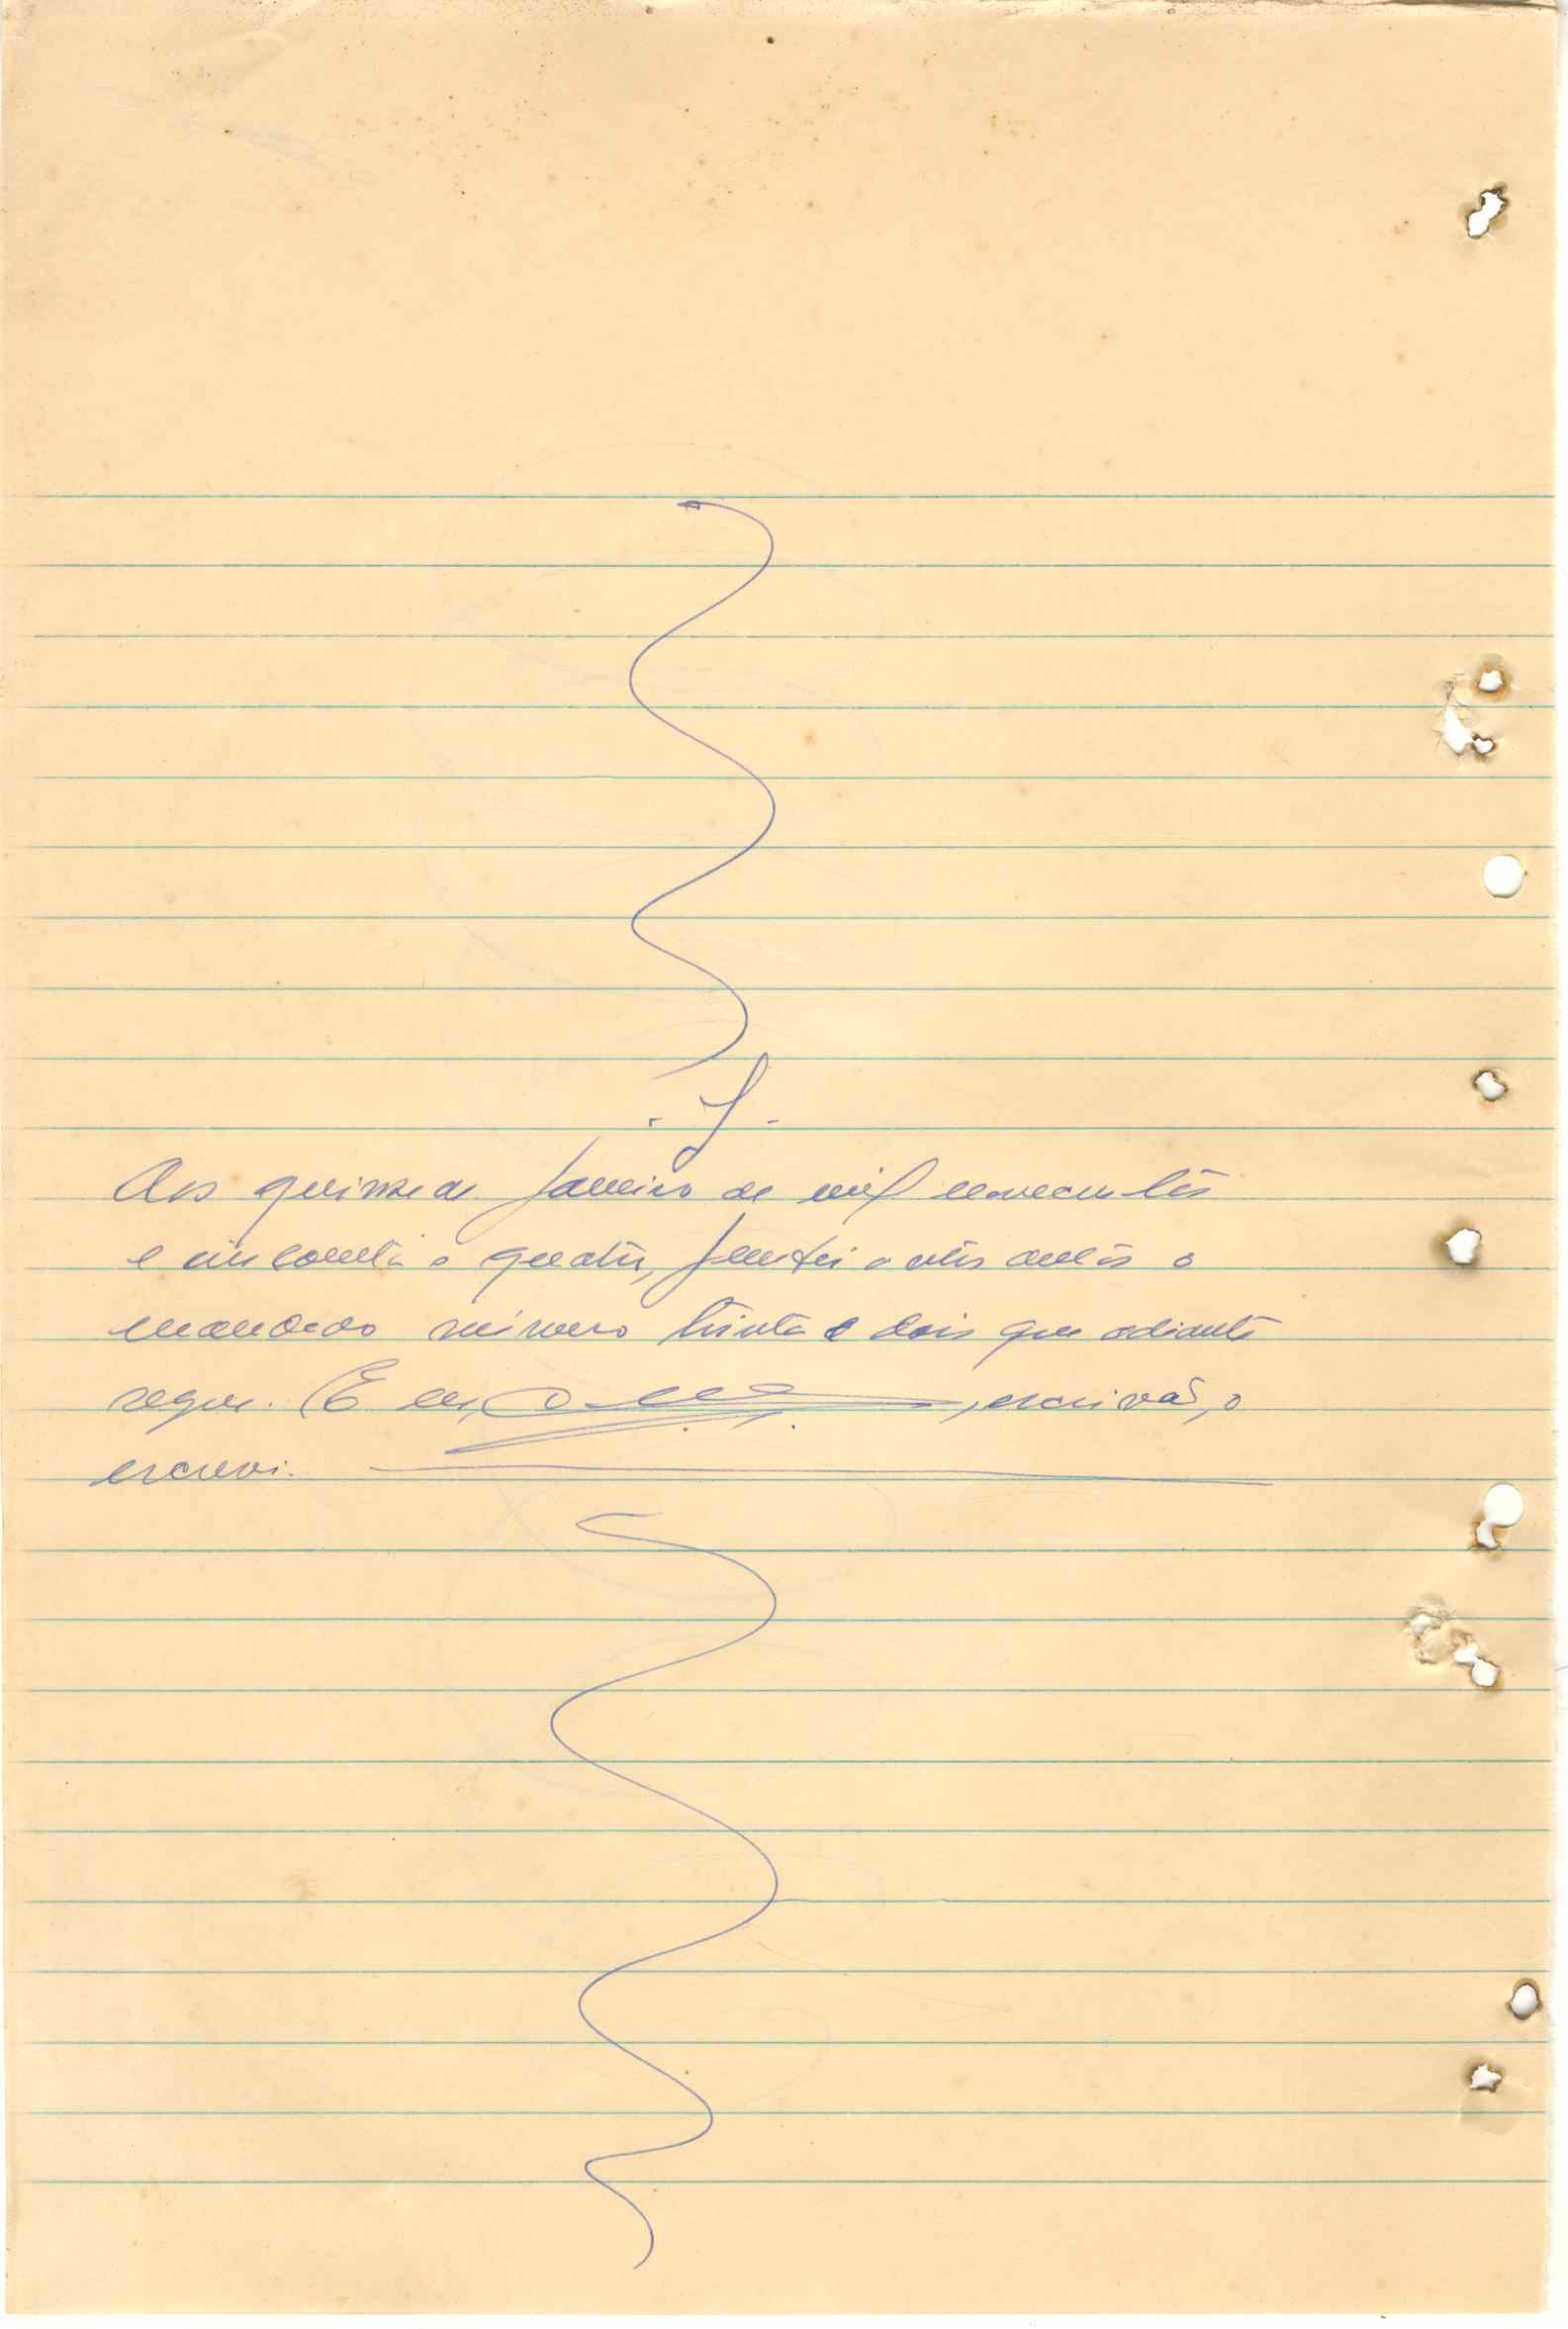 . J .
Aos quinze de Janeiro de mil novecentos
e cincoenta e quatro, juntei a êstes autos o
mandado número trinta e dois que adiante
segue. E eu, , escrivão, o
escrevi.